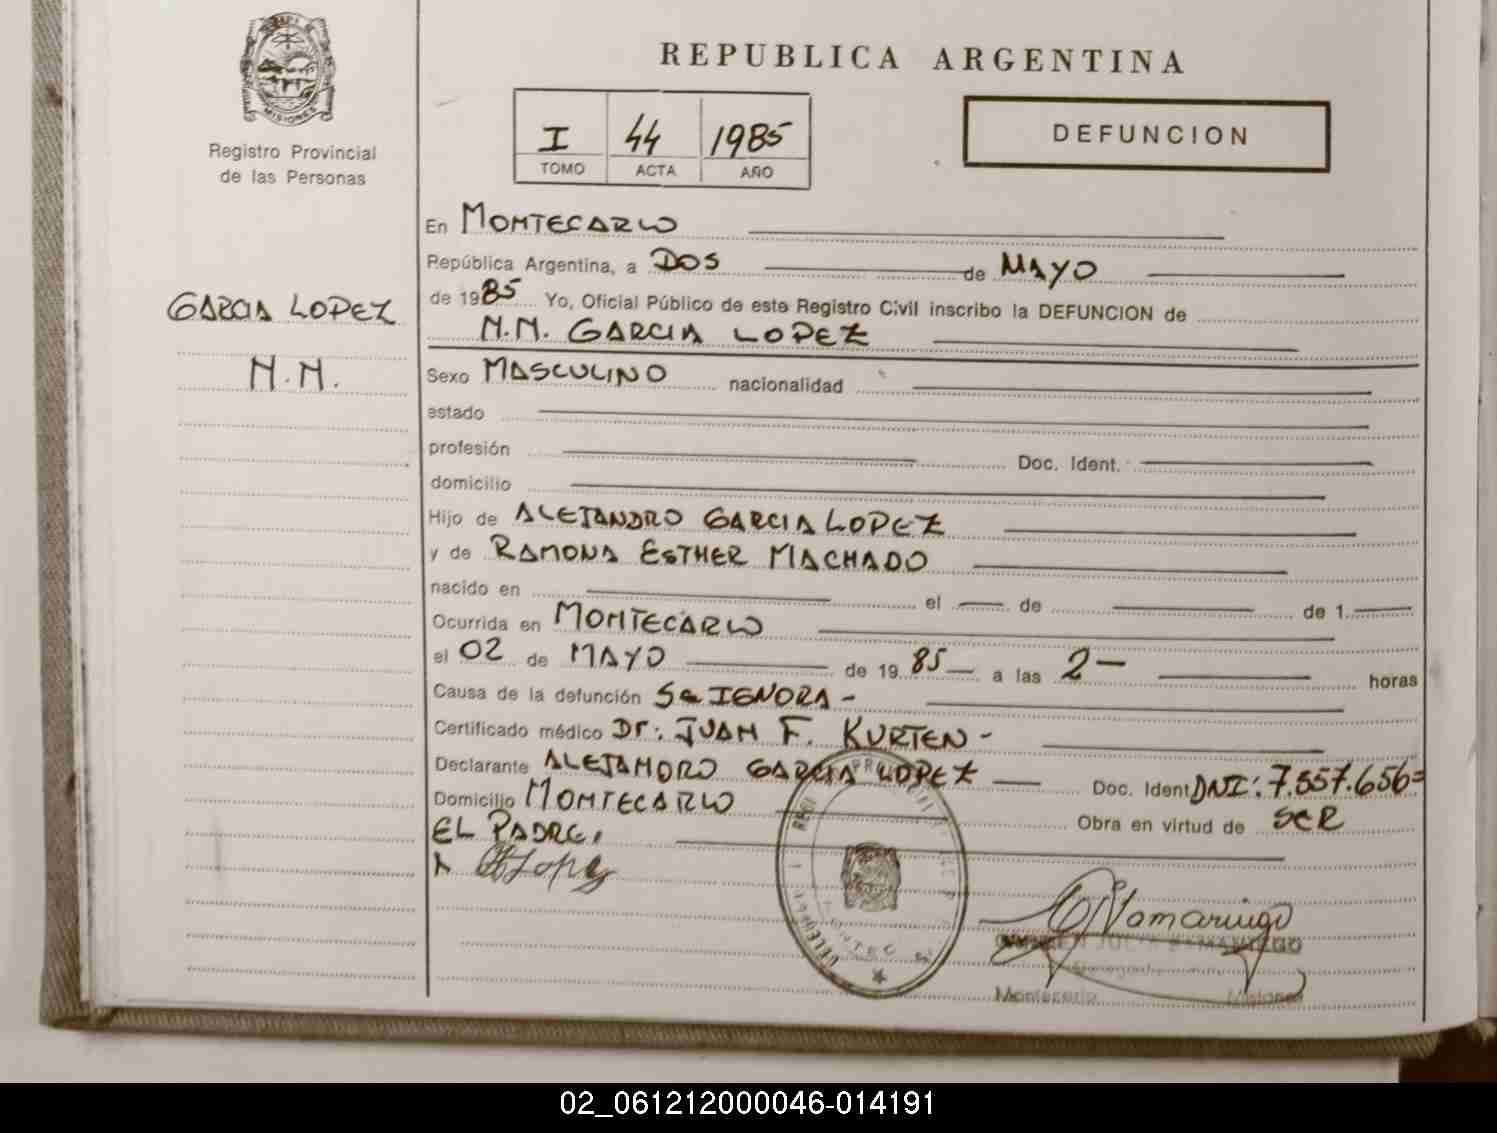 REPUBLICA ARGENTINA
MISIONES
Registro Provincial
de las Personas
I 44 1985
TOMO ACTA AÑO
DEFUNCION
GARCIA LOPEZ
N.N.
En MONTECARLO
República Argentina, a DOS de MAYO
de 1985 Yo, Oficial Público de este Registro Civil inscribo la DEFUNCION de
N.N. GARCIA LOPEZ
Sexo MASCULINO nacionalidad
estado
profesión Doc. Ident.
domicilio
Hijo de ALEJANDRO GARCIA LOPEZ
y de RAMONA ESTHER MACHADO
nacido en el de de 1
Ocurrida en MONTECARLO
el 02 de MAYO de 1985 a las 2 horas
Causa de la defunción Se IGNORA
Certificado médico Dr: JUAN F. KURTEN
Declarante ALEJANDRO GARCIA LOPEZ Doc. Ident DNI: 7.557.656
Domicilio MONTECARLO Obra en virtud de SER
EL PADRE.
Montecarlo Misiones
02_061212000046-014191